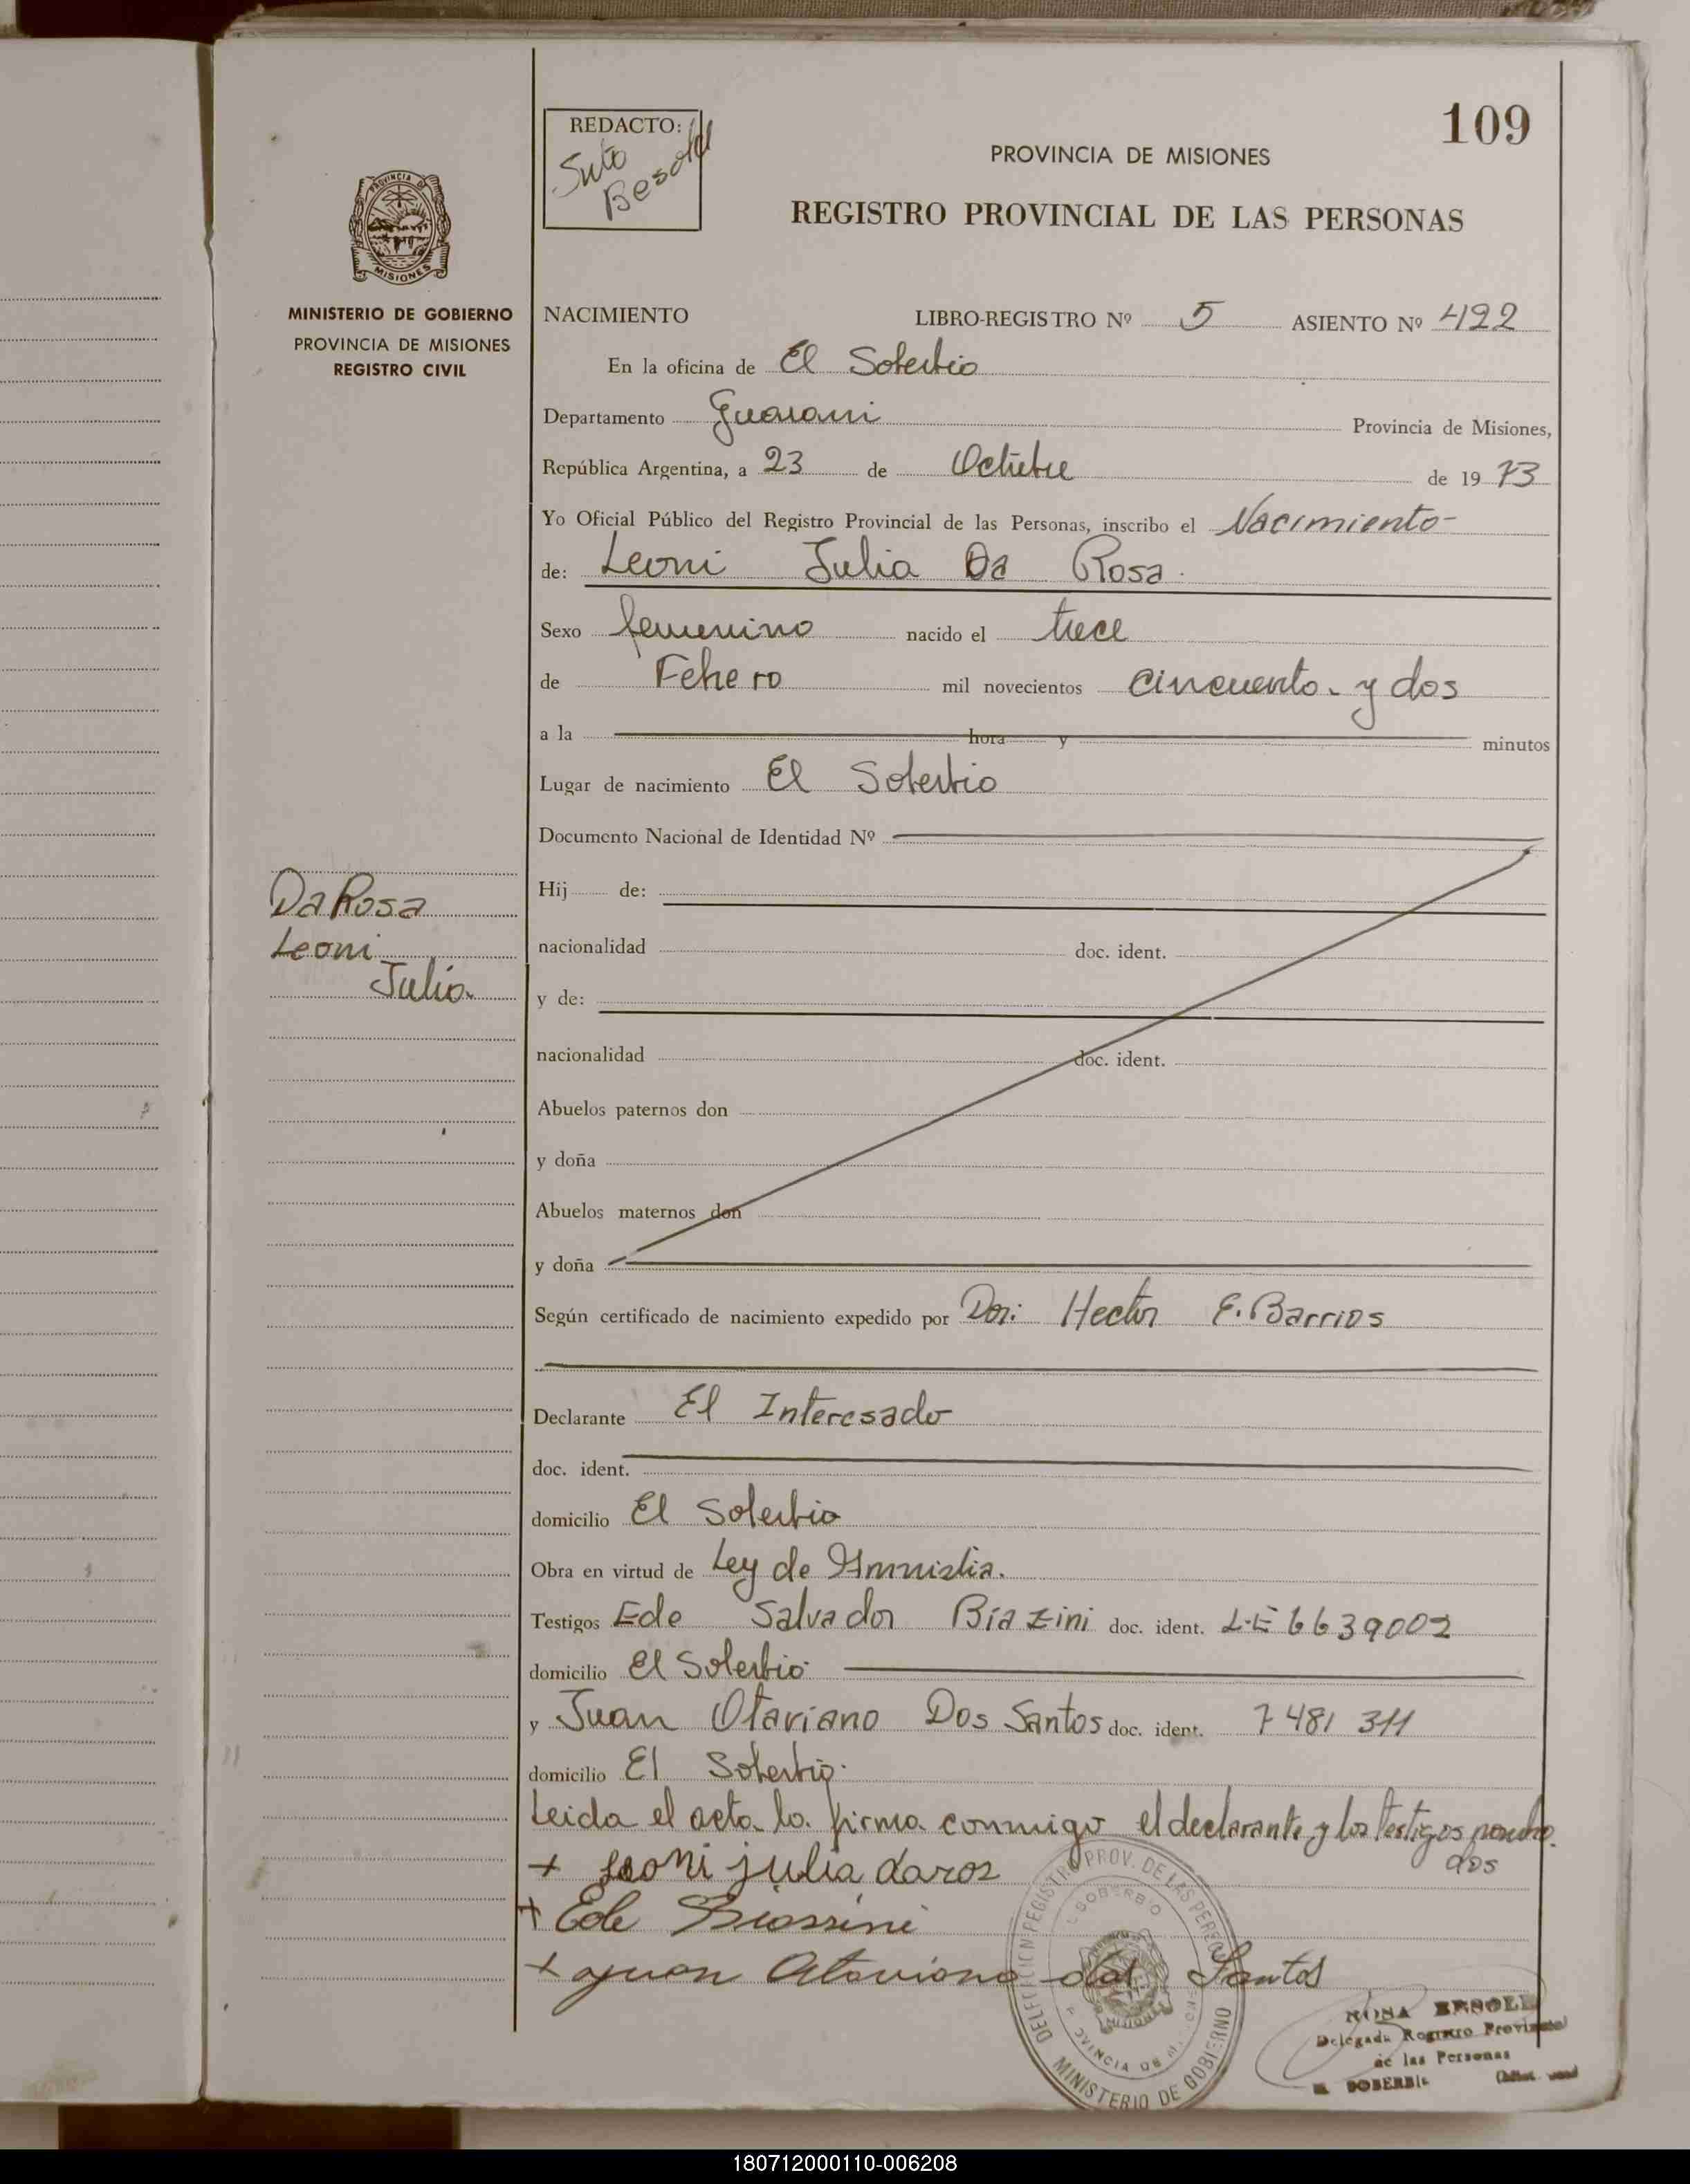 109
REDACTO:
PROVINCIA DE MISIONES
REGISTRO PROVINCIAL DE LAS PERSONAS
PROVINCIA DE
MISIONES
MINISTERIO DE GOBIERNO
PROVINCIA DE MISIONES
REGISTRO CIVIL
NACIMIENTO LIBRO-REGISTRO Nº 5 ASIENTO Nº 422
En la oficina de El Soberbio
Departamento Guarani Provincia de Misiones,
República Argentina, a 23 de Octubre de 1973
Yo Oficial Público del Registro Provincial de las Personas, inscribo el Nacimiento-
de: Leoni Julia Da Rosa.
Sexo femenino nacido el trece
de Febrero mil novecientos cincuenta y dos
a la hora y minutos
Lugar de nacimiento El Soberbio
Documento Nacional de Identidad Nº
Da Rosa
Leoni
Julia
Hij de:
nacionalidad doc. ident.
y de:
nacionalidad doc. ident.
Abuelos paternos don
y doña
Abuelos maternos don
y doña
Según certificado de nacimiento expedido por Don: Hector E. Barrios
Declarante El Interesado
doc. ident.
domicilio El Soberbio
Obra en virtud de Ley de Amnistia.
Testigos Ede Salvador Biazini doc. ident. L.E 6639002
domicilio El Soberbio
y Juan Otaviano Dos Santos doc. ident. 7481311
domicilio El Soberbio.
Leida el acta la firma conmigo el declarante y los testigos
+ Leoni julia daros
+ Ede Biassini
+ Juan Otaviano dos Santos
MINISTERIO DE GOBIERNO
Delegada Registro Provincial
de las Personas
EL SOBERBIO
180712000110-006208